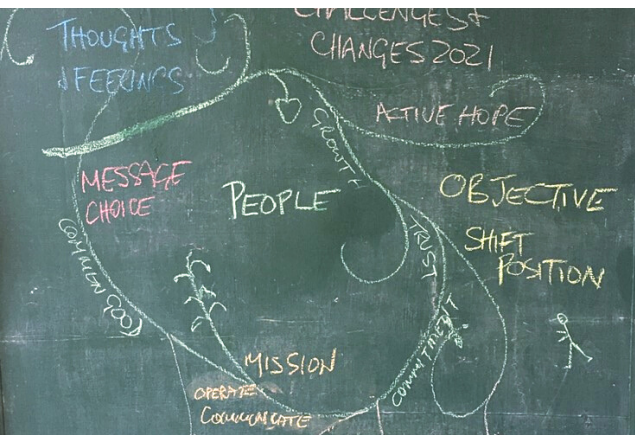 THOUGHTS
& FEELINGS
CHALLENGES &
CHANGES 2021
ACTIVE HOPE
GROWTH
MESSAGE
CHOICE
PEOPLE
OBJECTIVE
SHIFT
POSITION
TRUST
COMMON GOOD
COMMITMENT
MISSION
OPERATE
COMMUNICATE